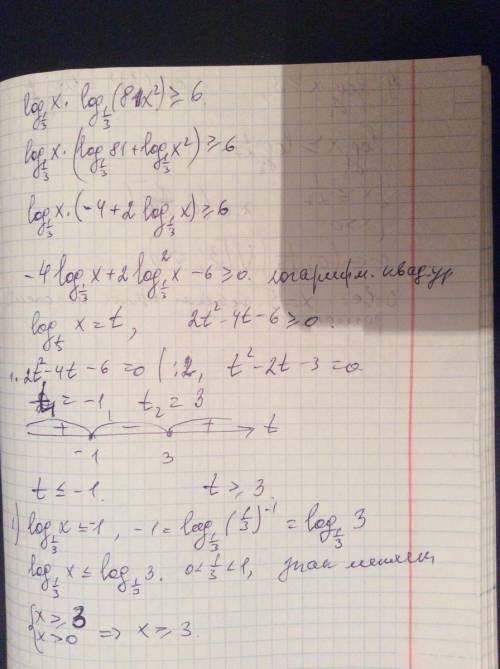 log_{1/3} x · log_{1/3} (81x²) ≥ 6
log_{1/3} x · (log_{1/3} 81 + log_{1/3} x²) ≥ 6
log_{1/3} x · (-4 + 2 log_{1/3} x) ≥ 6
-4 log_{1/3} x + 2 log²_{1/3} x - 6 ≥ 0. логарифм. квад. ур
log_{1/3} x = t, 2t² - 4t - 6 ≥ 0.
1. 2t² - 4t - 6 = 0 | :2, t² - 2t - 3 = 0
t₁ = -1, t₂ = 3
+ - + t
-1 3
t ≤ -1. t ≥ 3.
1) log_{1/3} x ≤ -1, -1 = log_{1/3} (1/3)^{-1} = log_{1/3} 3
log_{1/3} x ≤ log_{1/3} 3. 0 < 1/3 < 1, знак меняем
{x ≥ 3
{x > 0 => x ≥ 3.